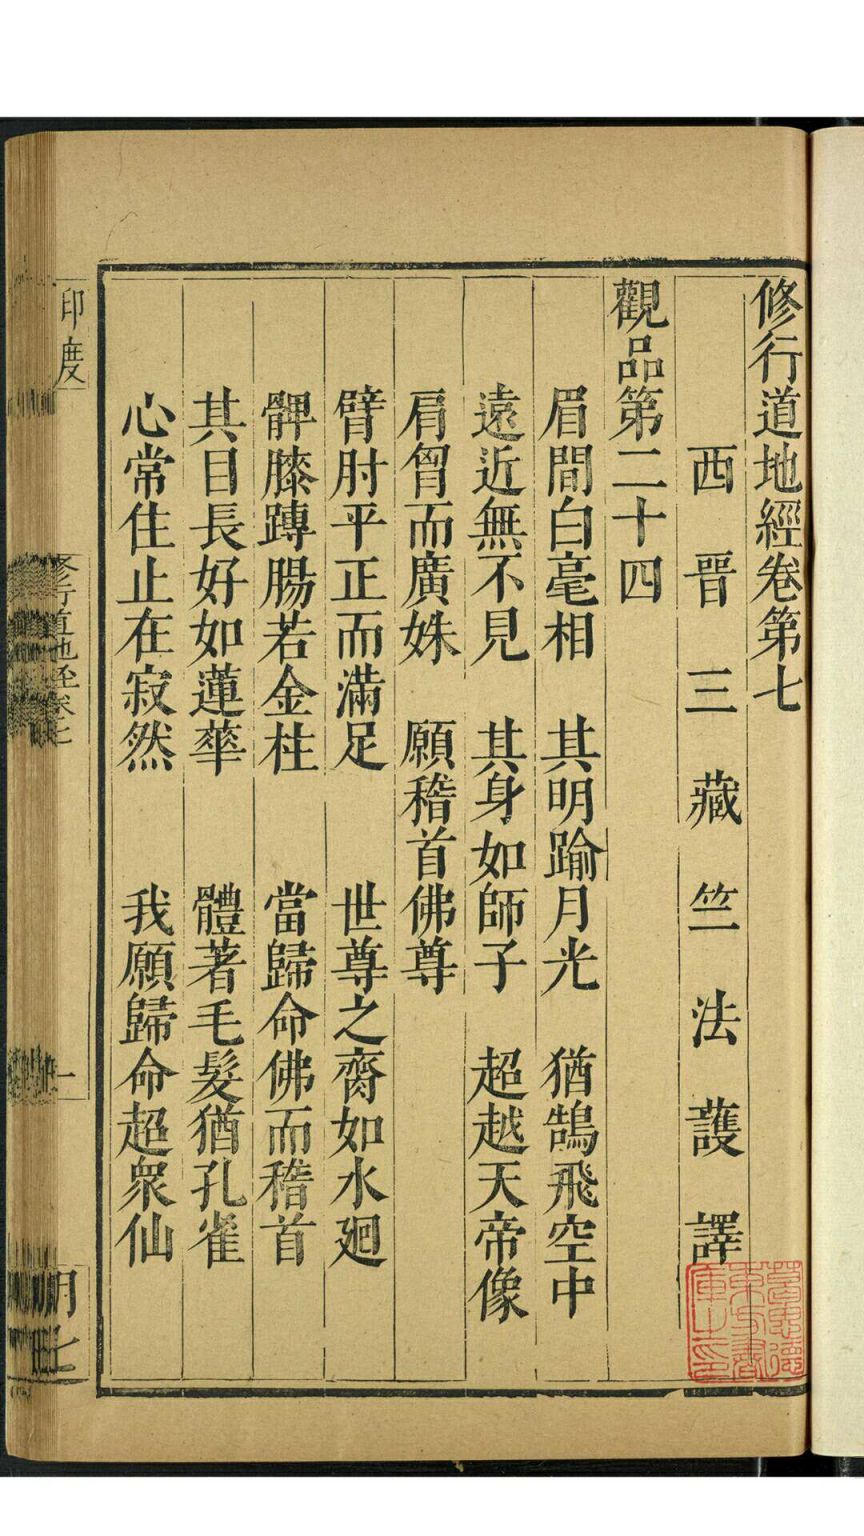 修行道地經卷第七
西晉三藏竺法護譯
觀品第二十四
眉間白毫相　其明踰月光　猶鵠飛空中
遠近無不見　其身如師子　超越天帝像
肩胷而廣姝　願稽首佛尊
臂肘平正而滿足　世尊之齎如水廻
髀膝踌腸若金柱　當歸命佛而稽首
其目長好如蓮華　體著毛髮猶孔雀
心常住止在寂然　我願歸命超衆仙
印度
修行道地经卷七
一